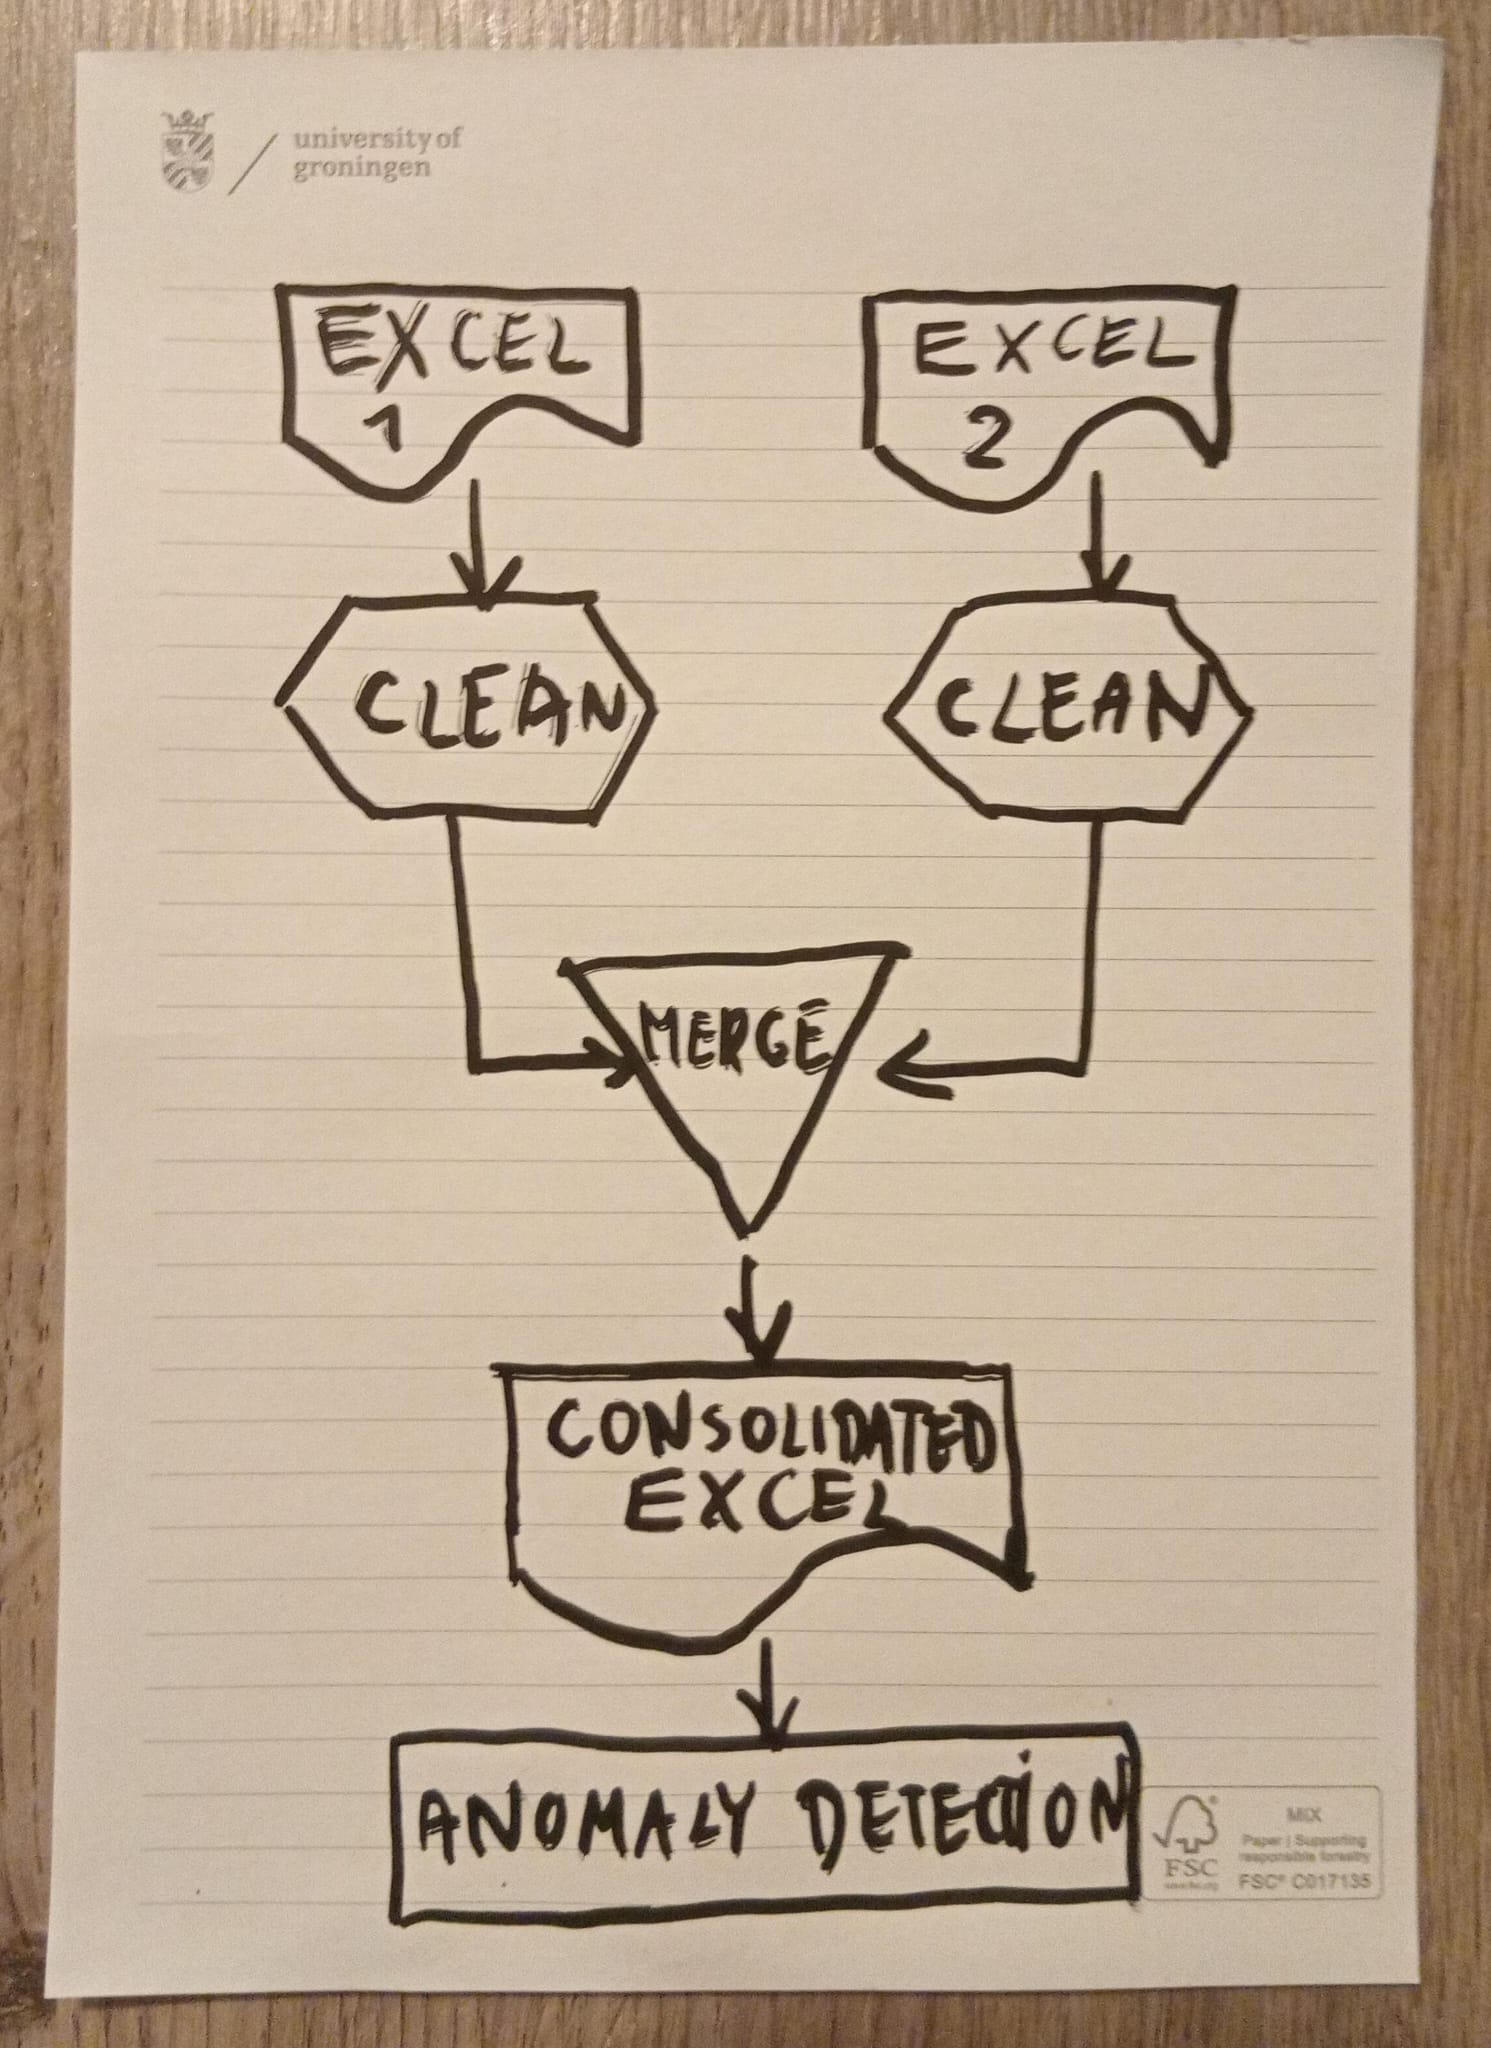 university of
groningen
EXCEL
1
EXCEL
2
CLEAN
CLEAN
MERGE
CONSOLIDATED
EXCEL
ANOMALY DETECTION
MIX
Paper | Supporting
responsible forestry
FSC® C017135
FSC
www.fsc.org